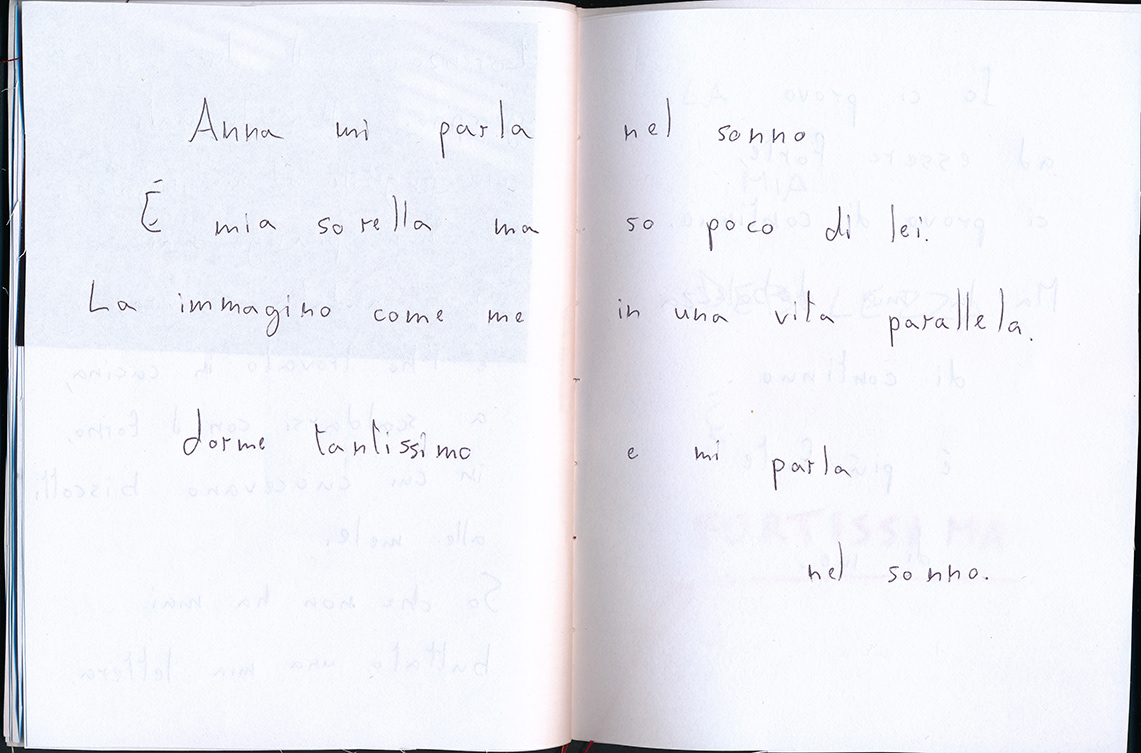 Anna mi parla nel sonno
É mia sorella ma so poco di lei.
La immagino come me in una vita parallela.
dorme tantissimo e mi parla
nel sonno.